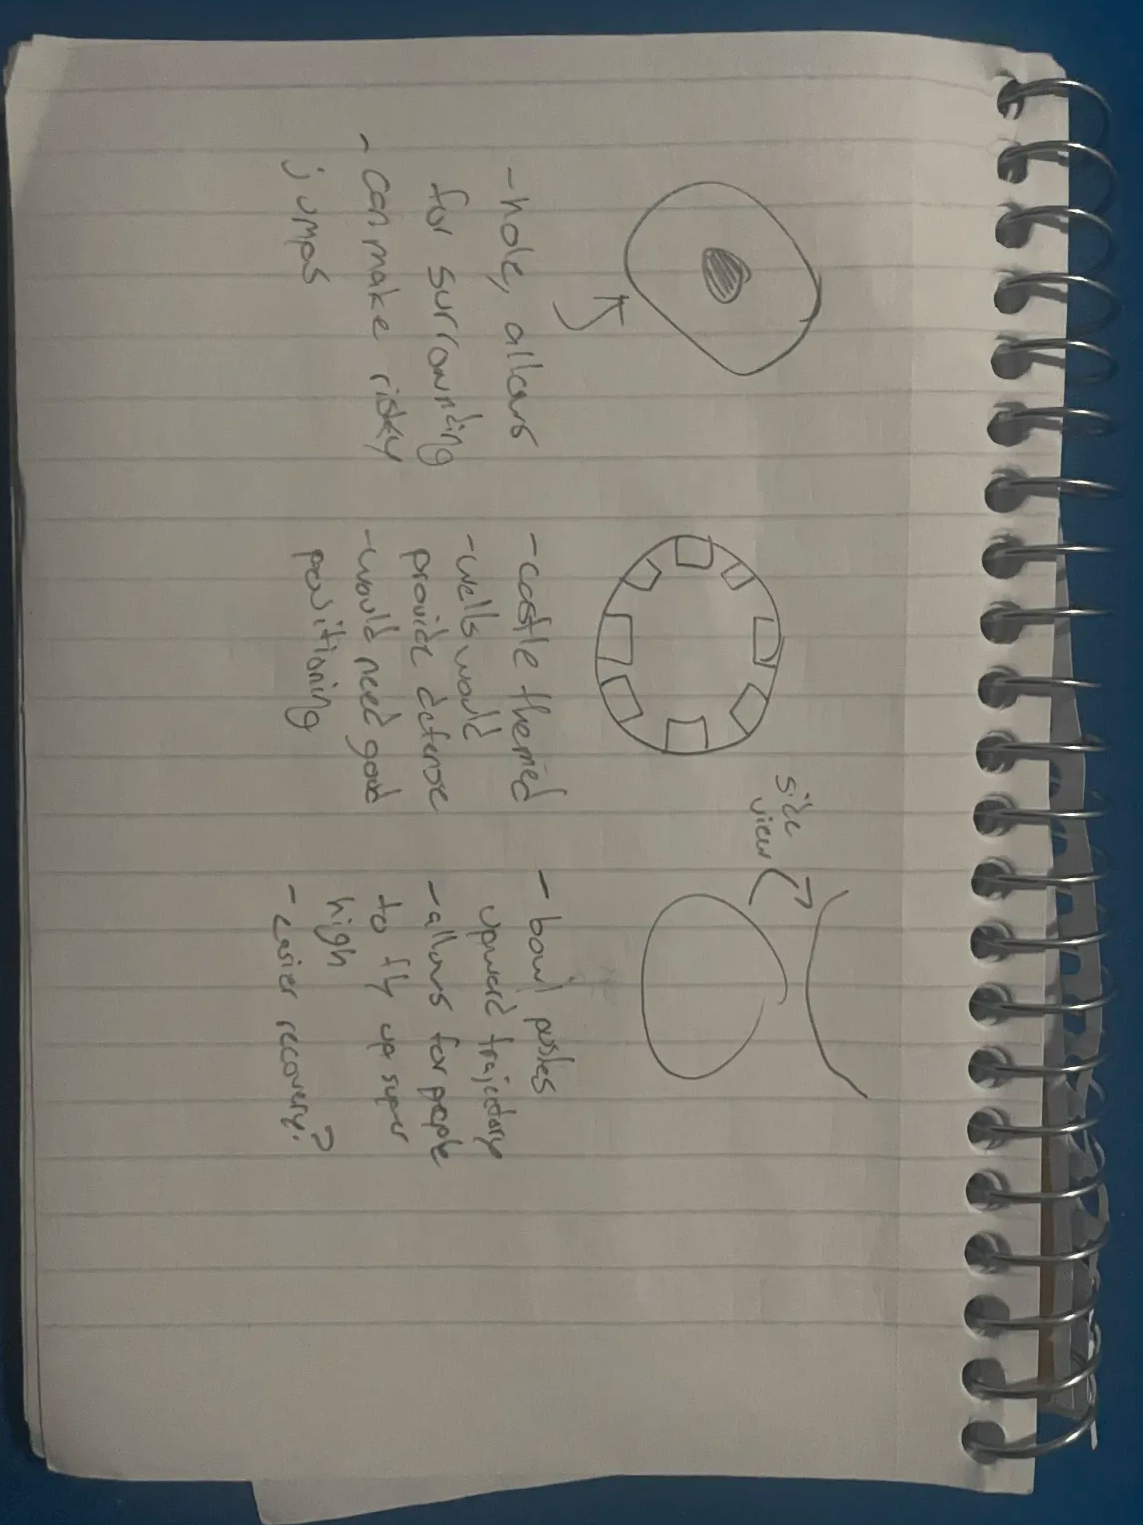 side
view
-hole, allows
for surrounding
- can make risky
jumps
- castle themed
- walls would
provide defense
- would need good
positioning
- bowl pushes
upward trajectory
- allows for people
to fly up super
high
- easier recovery?